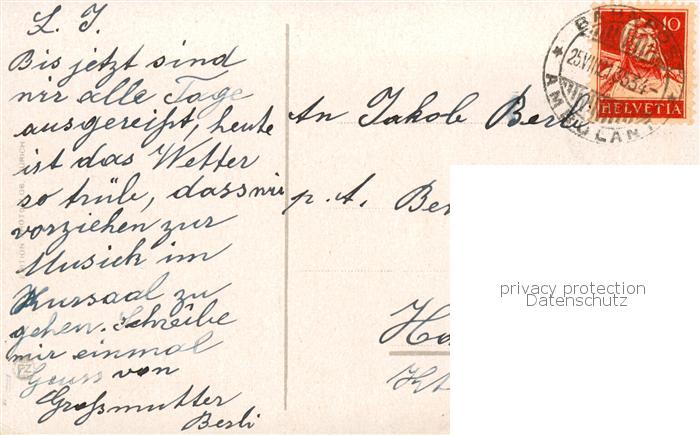 L. J.
Bis jetzt sind
wir alle Tage
ausgereißt, heute
ist das Wetter
so trübe, dass wir
vorziehen zur
Musick im
Kursaal zu
gehen. Schreibe
mir einmal
Gruss von
Grossmutter
Berli
An Jakob Ber
p. A. Ber
Ha
Kt
10
HELVETIA
AMBULANT
privacy protection
Datenschutz